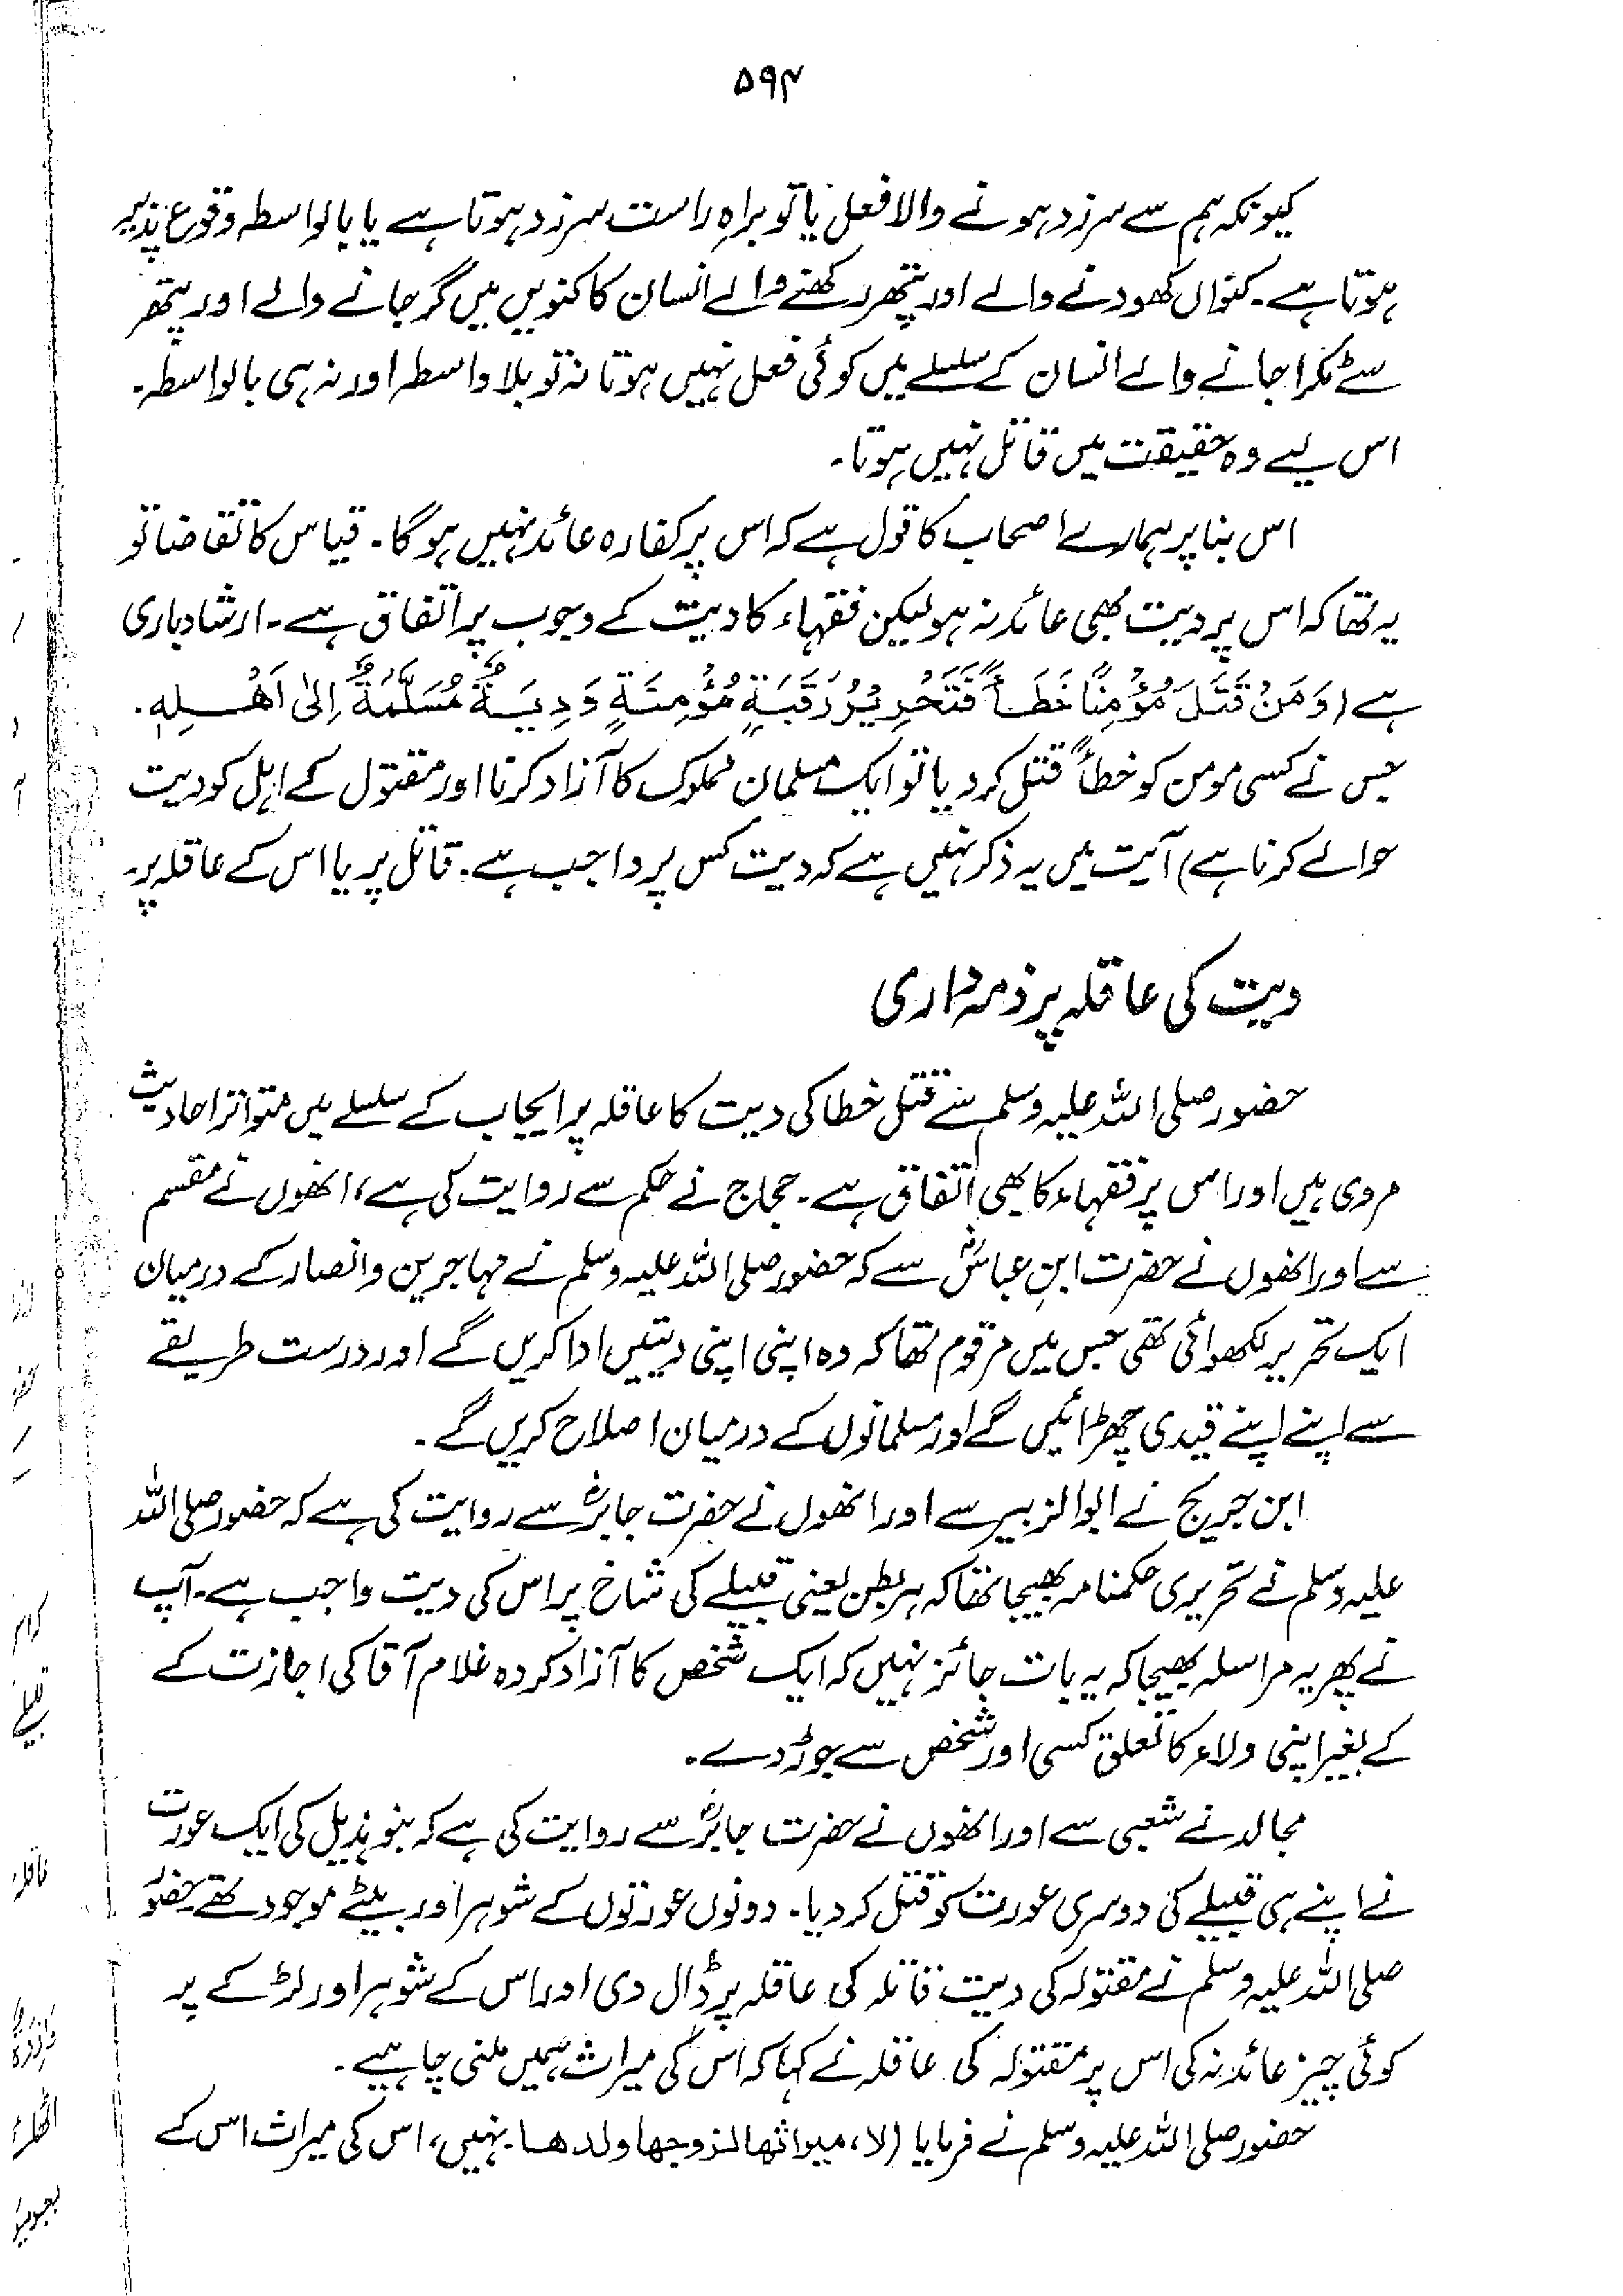 ۵۹۴
کیونکہ ہم سے سرزد ہونے والا فعل یا تو براہِ راست سرزد ہوتا ہے یا بالواسطہ وقوع پذیر
ہوتا ہے۔ کنواں کھودنے والے اور پتھر رکھنے والے انسان کا کنویں میں گر جانے والے اور پتھر
سے ٹکرا جانے والے انسان کے سلسلے میں کوئی فعل نہیں ہوتا نہ تو بلا واسطہ اور نہ ہی بالواسطہ۔
اس لیے وہ حقیقت میں قاتل نہیں ہوتا۔
اس بنا پر ہمارے اصحاب کا قول ہے کہ اس پر کفارہ عائد نہیں ہو گا۔ قیاس کا تقاضا تو
یہ تھا کہ اس پر دیت بھی عائد نہ ہو لیکن فقہاء کا دیت کے وجوب پر اتفاق ہے۔ ارشاد باری
ہے (وَمَنْ قَتَلَ مُؤْمِنًا خَطَأً فَتَحْرِيْرُ رَقَبَةٍ مُؤْمِنَةٍ وَدِيَةٌ مُسَلَّمَةٌ اِلىٰ اَهْلِهٖ۔
جس نے کسی مومن کو خطأً قتل کر دیا تو ایک مسلمان مملوک کا آزاد کرنا اور مقتول کے اہل کو دیت
حوالے کرنا ہے) آیت میں یہ ذکر نہیں ہے کہ دیت کس پر واجب ہے۔ قاتل پر یا اس کے عاقلہ پر۔
دیت کی عاقلہ پر ذمہ داری
حضور صلی اللہ علیہ وسلم سے قتل خطا کی دیت کا عاقلہ پر ایجاب کے سلسلے میں متواتر احادیث
مروی ہیں اور اس پر فقہاء کا بھی اتفاق ہے۔ حجاج نے حکم سے روایت کی ہے، انھوں نے مقسم
سے اور انھوں نے حضرت ابنِ عباسؓ سے کہ حضور صلی اللہ علیہ وسلم نے مہاجرین و انصار کے درمیان
ایک تحریر لکھوائی تھی جس میں مرقوم تھا کہ وہ اپنی اپنی دیتیں ادا کریں گے اور درست طریقے
سے اپنے اپنے قیدی چھڑائیں گے اور مسلمانوں کے درمیان اصلاح کریں گے۔
ابن جریج نے ابوالزبیر سے اور انھوں نے حضرت جابرؓ سے روایت کی ہے کہ حضور صلی اللہ
علیہ وسلم نے تحریری حکمنامہ بھیجا تھا کہ ہر بطن یعنی قبیلے کی شاخ پر اس کی دیت واجب ہے۔ آپ
نے پھر یہ مراسلہ بھیجا کہ یہ بات جائز نہیں کہ ایک شخص کا آزاد کردہ غلام آقا کی اجازت کے
کے بغیر اپنی ولاء کا تعلق کسی اور شخص سے جوڑ دے۔
مجالد نے شعبی سے اور انھوں نے حضرت جابرؓ سے روایت کی ہے کہ بنو ہذیل کی ایک عورت
نے اپنے ہی قبیلے کی دوسری عورت کو قتل کر دیا۔ دونوں عورتوں کے شوہر اور بیٹے موجود تھے۔ حضور
صلی اللہ علیہ وسلم نے مقتولہ کی دیت قاتلہ کی عاقلہ پر ڈال دی اور اس کے شوہر اور لڑکے پر
کوئی چیز عائد نہ کی اس پر مقتولہ کی عاقلہ نے کہا کہ اس کی میراث ہمیں ملنی چاہیے۔
حضور صلی اللہ علیہ وسلم نے فرمایا (لا، میراثھا لزوجھا ولدھا۔ نہیں، اس کی میراث اس کے